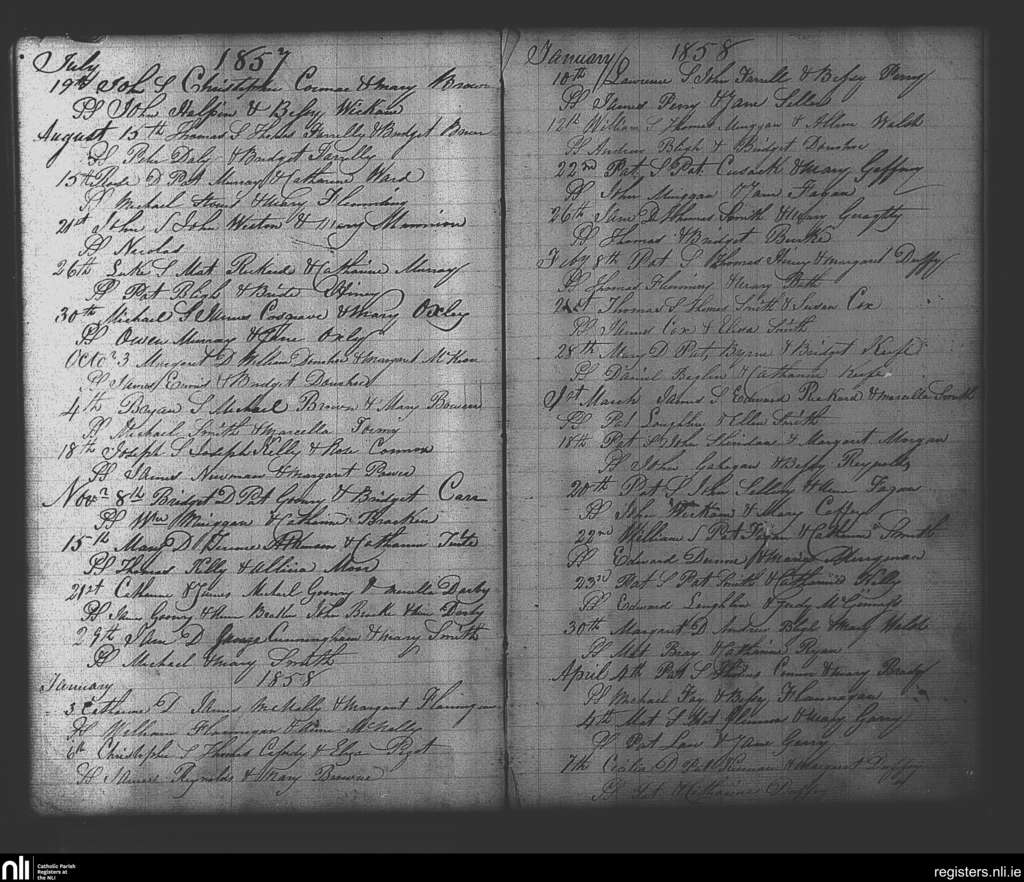 July 1857
19th John S Christopher Cormac & Mary Brown
PS John Halpin & Bessy Wickam
August 15th Thomas S Thomas Farrelly & Bridget Breen
PS Peter Daly & Bridget Farrelly
15th D Pat Murray & Catharine Ward
PS Michael & Mary Flemming
21st John S John Weston & Mary
PS Nicolas
26th Luke S Mat Rickard & Catharine Murray
PS Pat Bligh & Bride Hiney
30th Michael S James Cosgrave & Mary Oxley
PS Owen Murray & Jane Oxley
Octor 3 Margaret D William Donohoe & Margaret McKeon
PS James & Bridget Donohoe
4th Bryan S Michael Brown & Mary
PS Michael Smith & Marcella Tormy
18th Joseph S Joseph Kelly & Rose Connor
PS James Newman & Margaret Power
Novr 8th Bridget D Pat Goonry & Bridget Carr
PS Wm Muggan & Catharine Bracken
15th Mary D & Catharine Tuite
PS Thomas Kelly & Moore
21st Catherine & James Michael Goonry & Darby
PS James Goonry & John Burke & Darby
29th Jane D George Cunningham & Mary Smith
PS Michael & Mary Smith
1858
January
3 Catherine D James McNally & Margaret Flanningan
PS William Flannagan & Anne McNally
6th Christopher S Thomas Cassidy & Eliza Pigot
PS James Reynolds & Mary Browne
January 1858
10th Lawrence S John Farrell & Bessy Perry
PS James Perry & Jane Sillery
12th William S Thomas Muggan & Walsh
PS Andrew Bligh & Bridget Donohoe
22nd Pat S Pat Cusack & Mary Gaffney
PS John Muggan & Jane Fagan
26th Jane D Thomas Smith & Mary Geraghty
PS Thomas & Bridget Burke
Feby 8th Pat S Thomas Henry & Margaret Duffy
PS Thomas Flemming & Mary
21st Thomas S Thomas Smith & Susan Cox
PS James Cox & Eliza Smith
28th Mary D Pat Byrne & Bridget Keefe
PS Daniel Beglin & Catharine Keefe
1st March James S Edward Rickard & Marcella Smith
PS Pat Loughlin & Ellen Smith
18th Pat S John Sheridan & Margaret Morgan
PS John Gahagan & Bessy Reynolds
20th Pat S John Sillery & Anne Fagan
PS John Wickam & Mary Coffey
22nd William S Pat Fagan & Catharine Smith
PS Edward Dunne & Maria
23rd Pat S Pat Smith & Catharine Kelly
PS Edward Loughlin & Judy McGinness
30th Margaret D Andrew & Mary Walsh
PS Mat Bray & Catharine Ryan
April 4th Pat S Thomas Connor & Mary Brady
PS Michael Fay & Bessy Flannagan
4th Mat S Pat & Mary Garry
PS Pat Law & Jane Garry
7th Cecilia D Pat Kiernan & Margaret Duffy
PS Pat & Catharine Duffy
nli Catholic Parish
Registers at
the NLI
registers.nli.ie